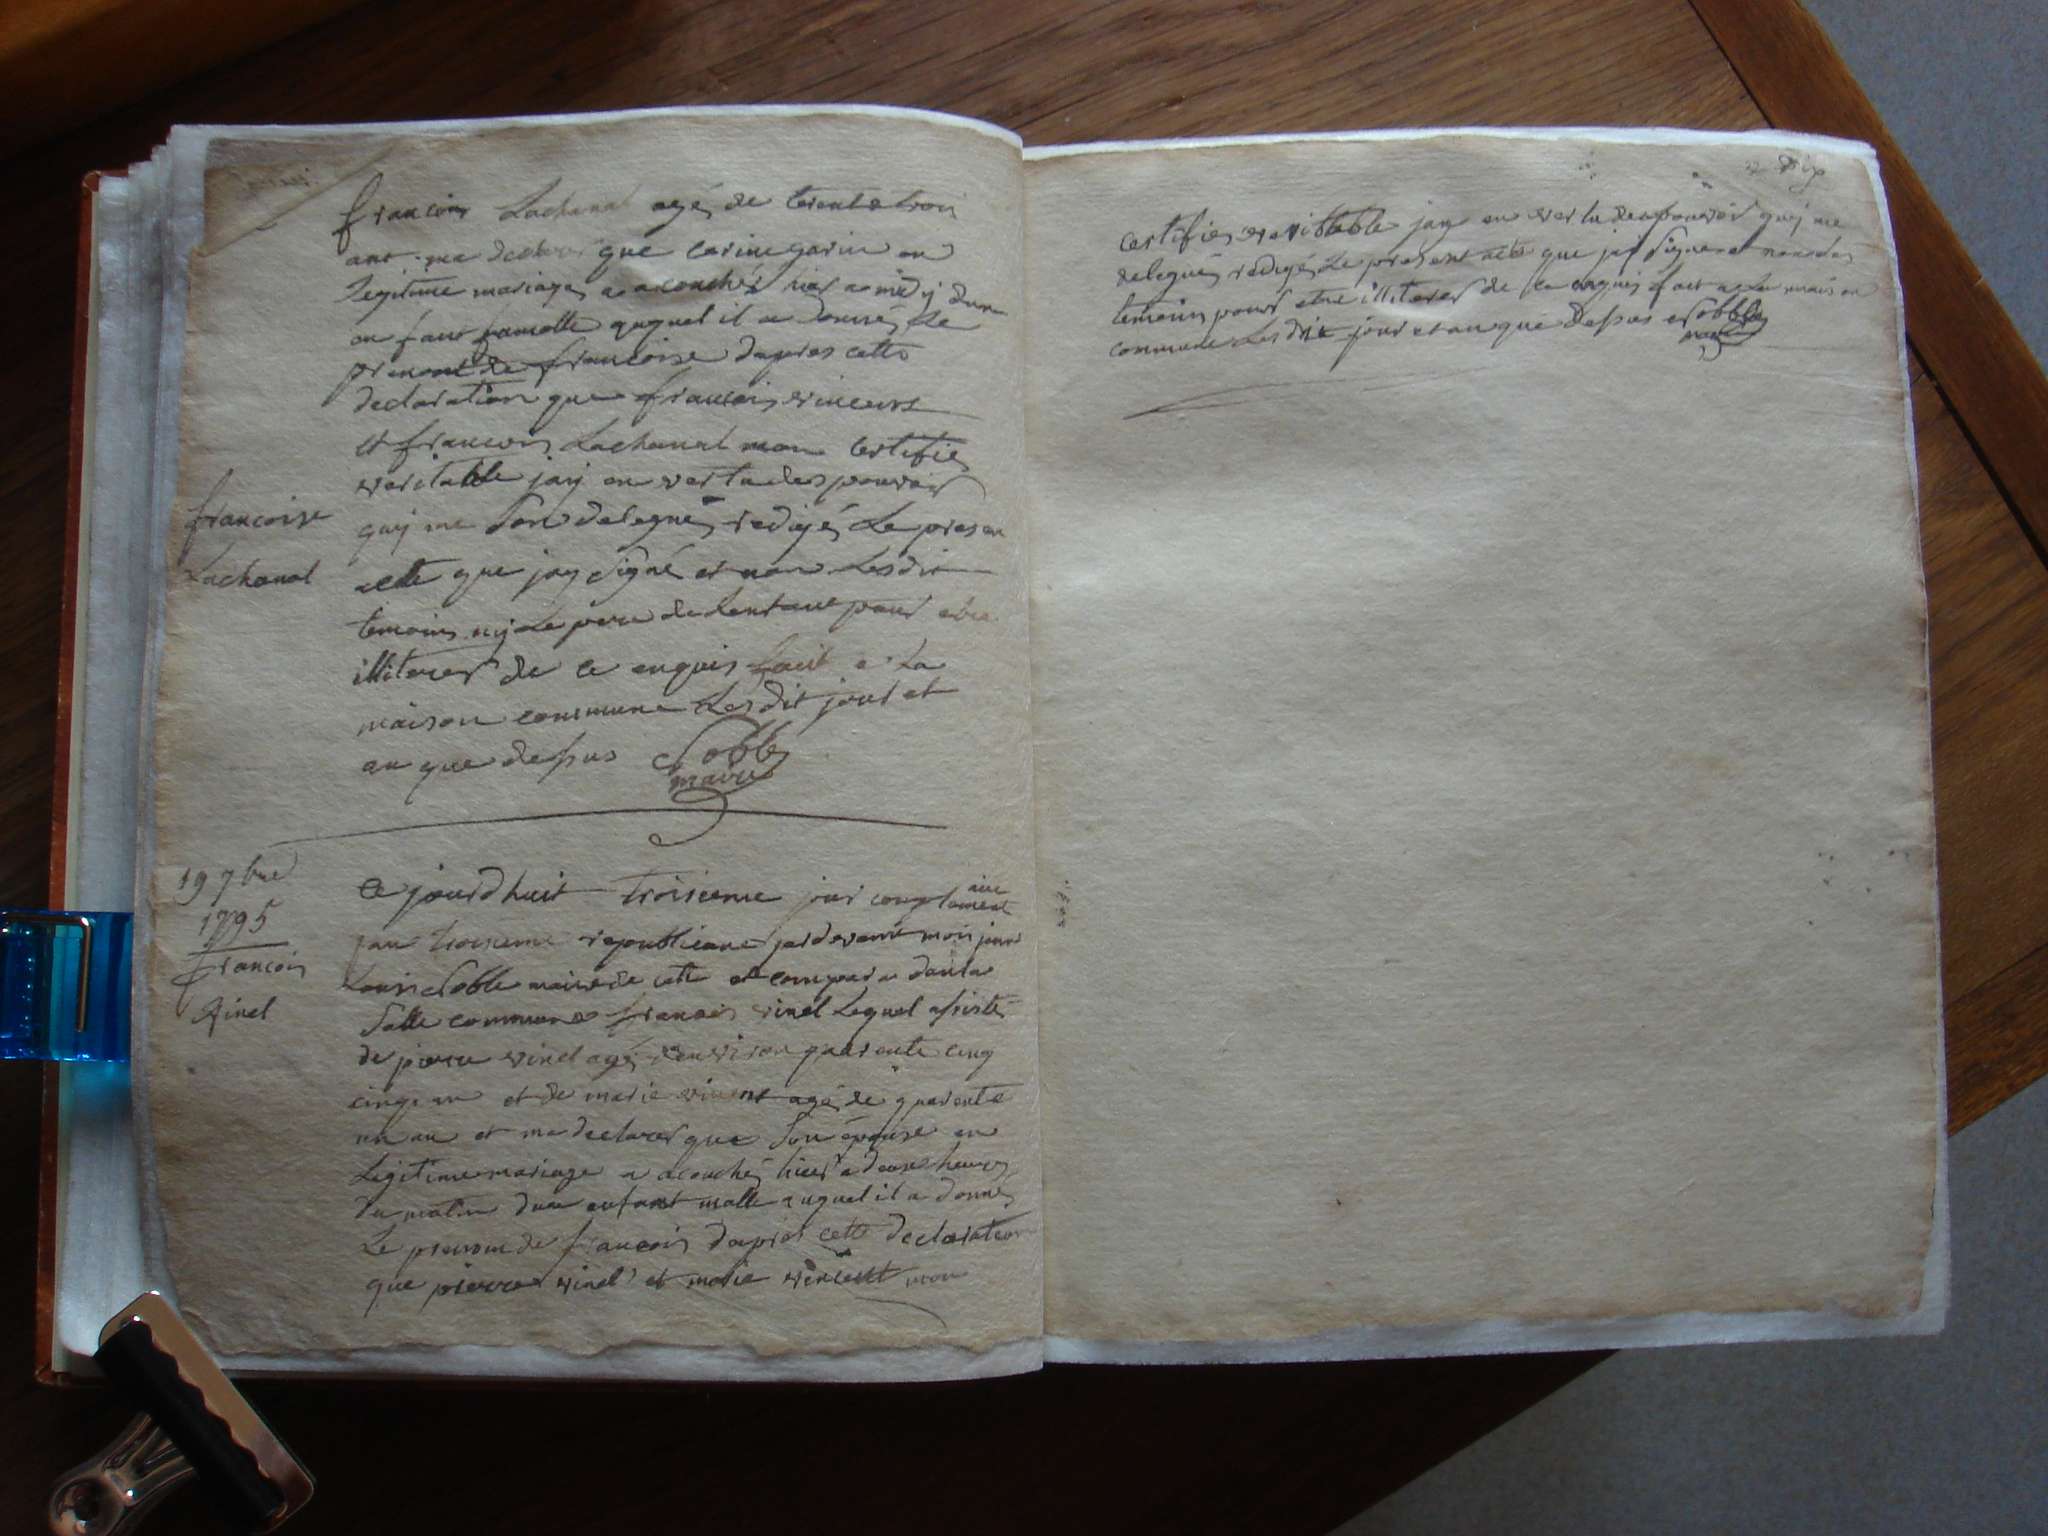 francois Lachanal agé de trente trois
ans ma declarer que carine garin en
legitime mariages a acouché hier a midy dun
en fant famelle auquel il a donnés le
prenom de francoise dapres cette
declaration que francois vincent
et francois Lachanal mon certifiés
veritable jay en vertu des pouvoir
quy me son delegués redigés Le presen
acte que jay signé et non Lesdit
temoins ny Le pere de Lenfant pour etre
illiterer de ce enquis fait a La
maison commune Lesdit jour et
an que dessus Noble
maire
francoise
Lachanal
19 7bre
1795
francois
Vinel
Ce jourdhuit troisieme jour complementaire
lan troisieme republicane pardevant moy jean
Louis Noble maire de cette et comparu dans la
salle commune francois vinel Lequel assisté
de pierre vinel agé denviron quarente cinq
cinq an et de marie vincent agé de quarente
un an et ma declarer que son épouse en
Legitime mariage a acouché hier a deux heures
du matin dun enfant malle auquel il a donnés
Le prenom de francois dapres cette declaration
que pierre vinel et marie vincent mon
dix
certifiés veritable jay en vertu des pouvoir quy me
delegués redigés Le present acte que jay signer et non Les
temoins pour etre illiterer de ce enquis fait a La maison
commune Lesdit jour et an que dessus Noble
maire